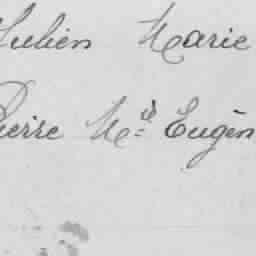 Julien Marie
Pierre M.d Eugèn